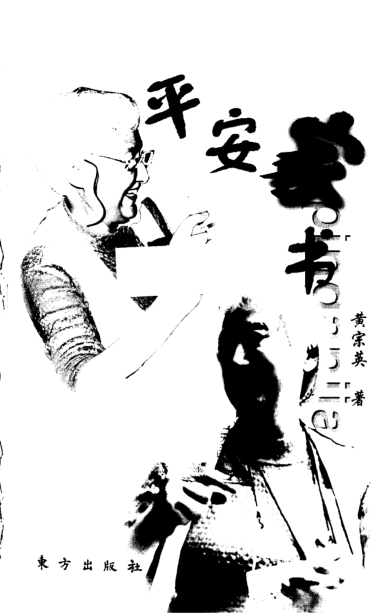 平安家书
黄宗英 著
東方出版社